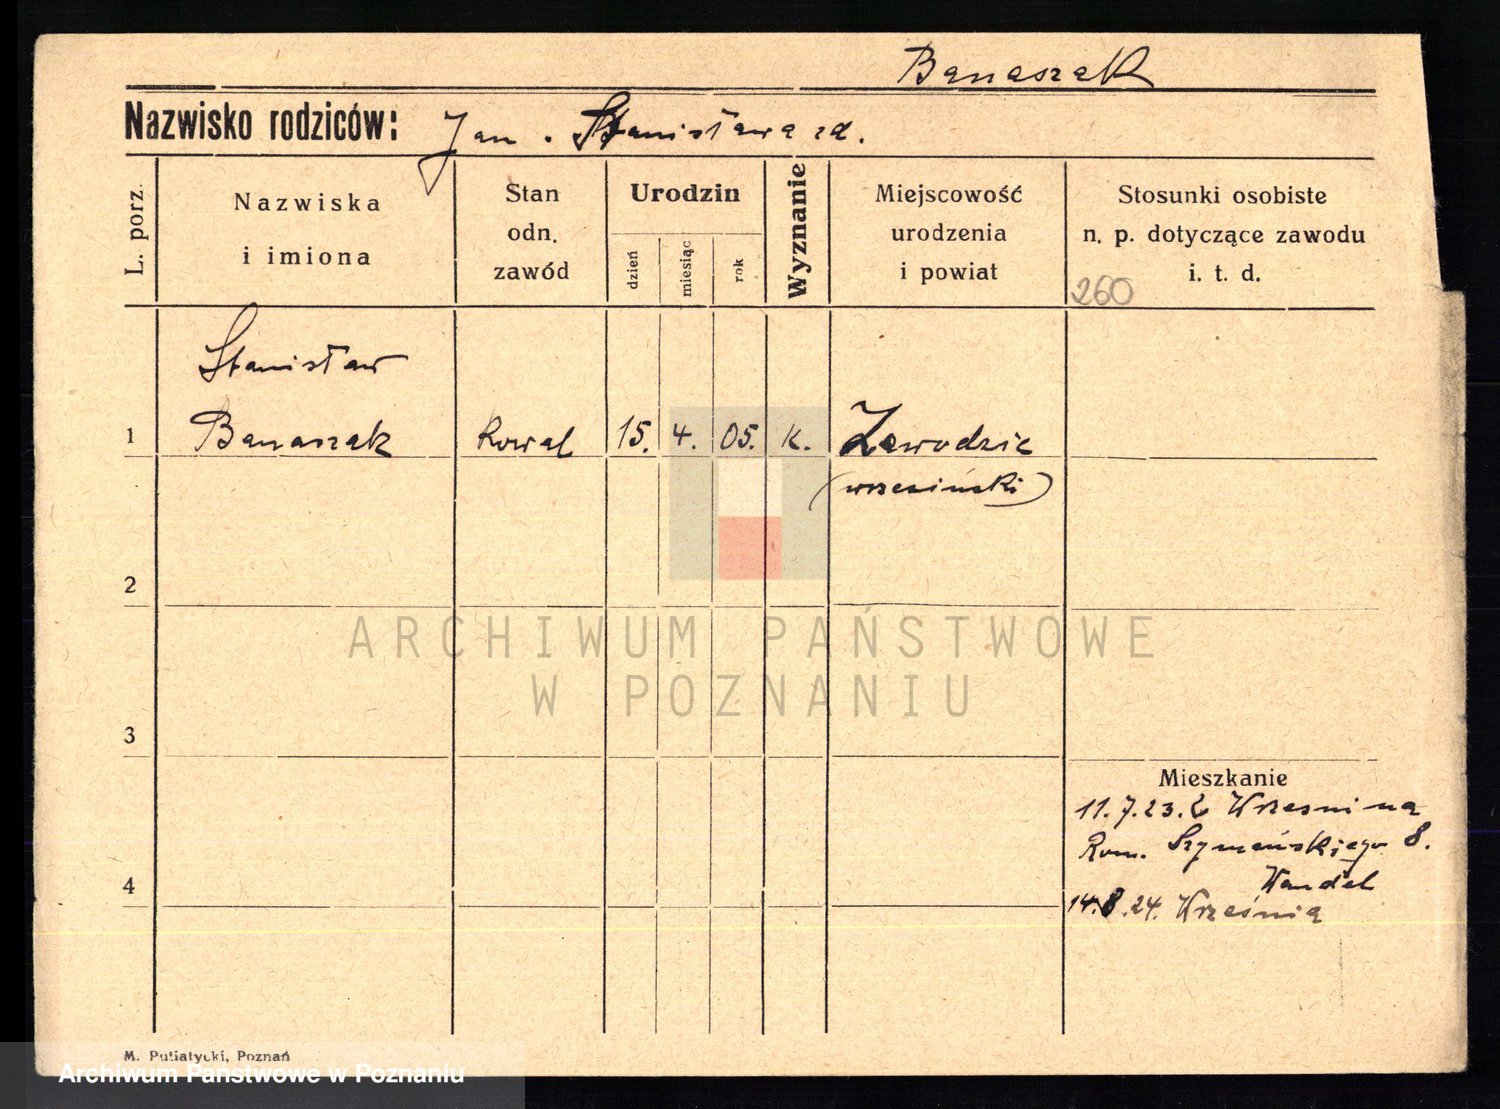 Banaszak
Nazwisko rodziców: Jan . Stanisława zd.
L. porz.
Nazwiska
i imiona
Stan
odn.
zawód
Urodzin
dzień
miesiąc
rok
Wyznanie
Miejscowość
urodzenia
i powiat
Stosunki osobiste
n. p. dotyczące zawodu
i. t. d.
260
Stanisław
1 Banaszak kowal 15. 4. 05. K. Zawodzie
(wrzesiński)
2
ARCHIWUM PAŃSTWOWE
W POZNANIU
3
Mieszkanie
11.7.23. z Wrześni na
Rom. Szymańskiego 8.
Wandel
4
14.8.24. Września
M. Putiatycki, Poznań
Archiwum Państwowe w Poznaniu